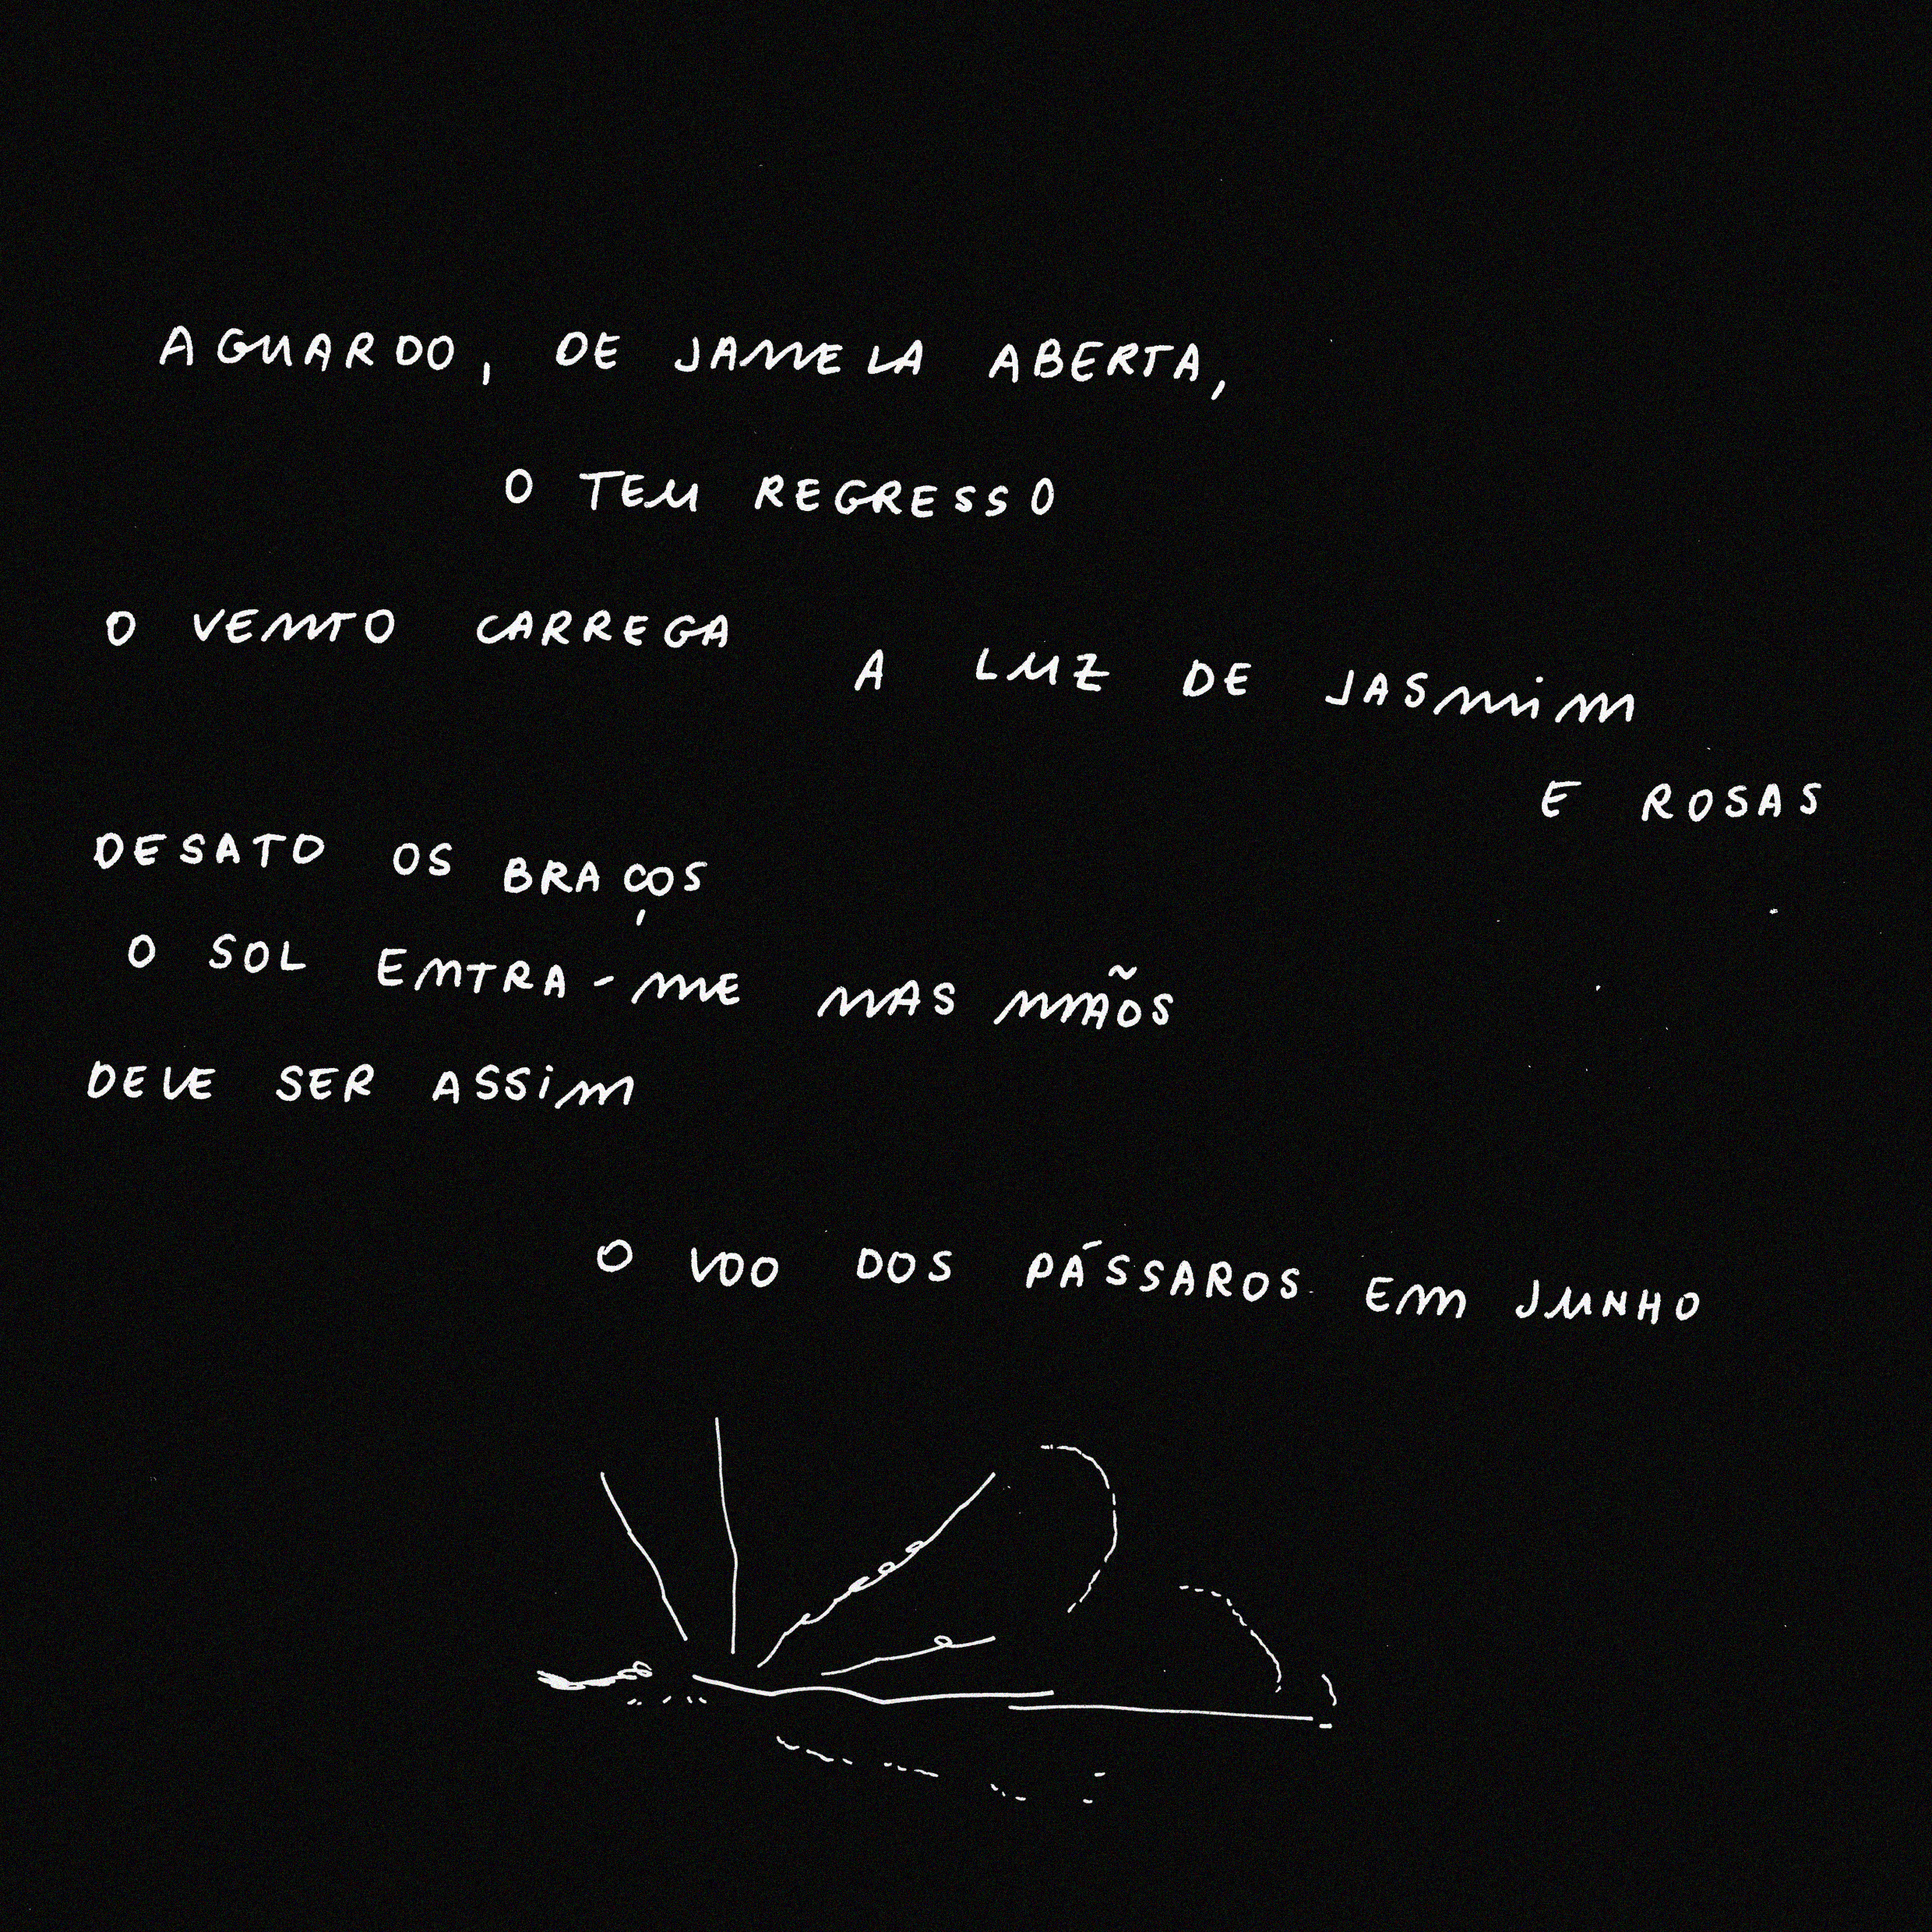 AGUARDO, DE JANELA ABERTA,
O TEU REGRESSO
O VENTO CARREGA A LUZ DE JASMIM
E ROSAS
DESATO OS BRAÇOS
O SOL ENTRA-ME NAS MÃOS
DEVE SER ASSIM
O VOO DOS PÁSSAROS EM JUNHO